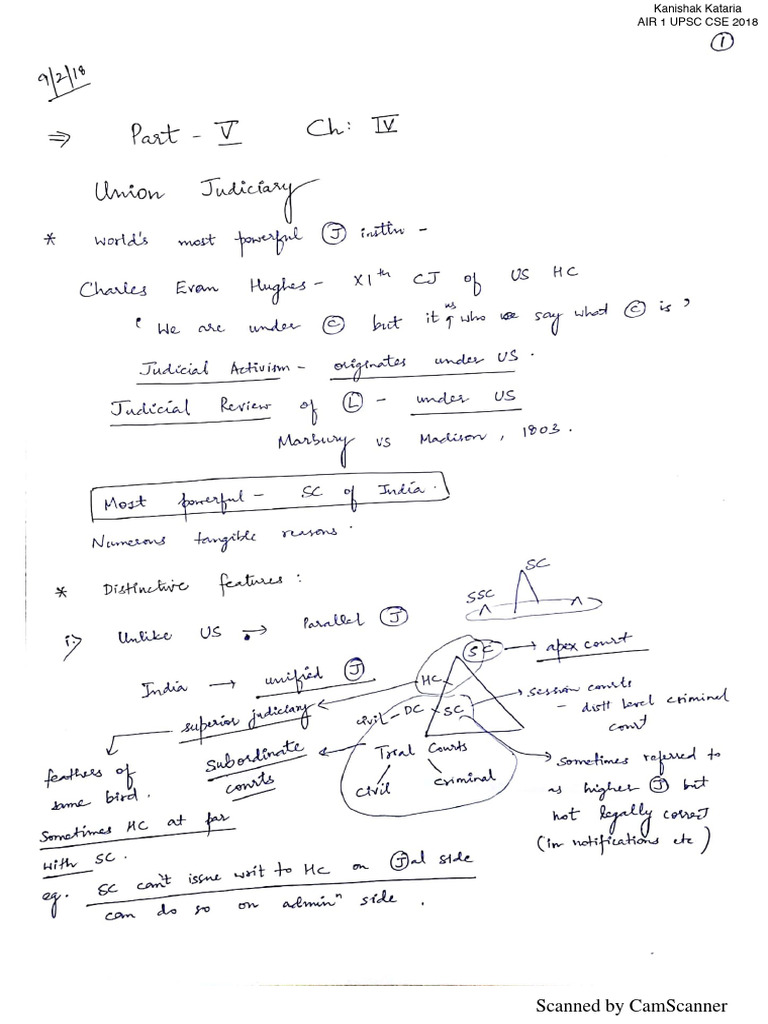 Kanishak Kataria
AIR 1 UPSC CSE 2018
1
9/2/18
⇒ Part - V Ch: IV
Union Judiciary
* World's most powerful J instn -
Charles Evan Hughes - XIth CJ of US HC
'We are under C but it is who we say what C is'
Judicial Activism - originates under US.
Judicial Review of L - under US
Marbury vs Madison, 1803.
Most powerful - SC of India.
Numerous tangible reasons.
* Distinctive features:
SC
SSC
i:) Unlike US → Parallel J
SC → apex court
India → unified J
HC
superior judiciary
civil - DC SC
session courts
- distt level criminal court
feathers of same bird.
subordinate courts
Trial Courts
civil
criminal
sometimes referred to as higher J but not legally correct (in notifications etc)
Sometimes HC at par with SC.
eg. SC can't issue writ to HC on Jal side
can do so on adminn side.
Scanned by CamScanner